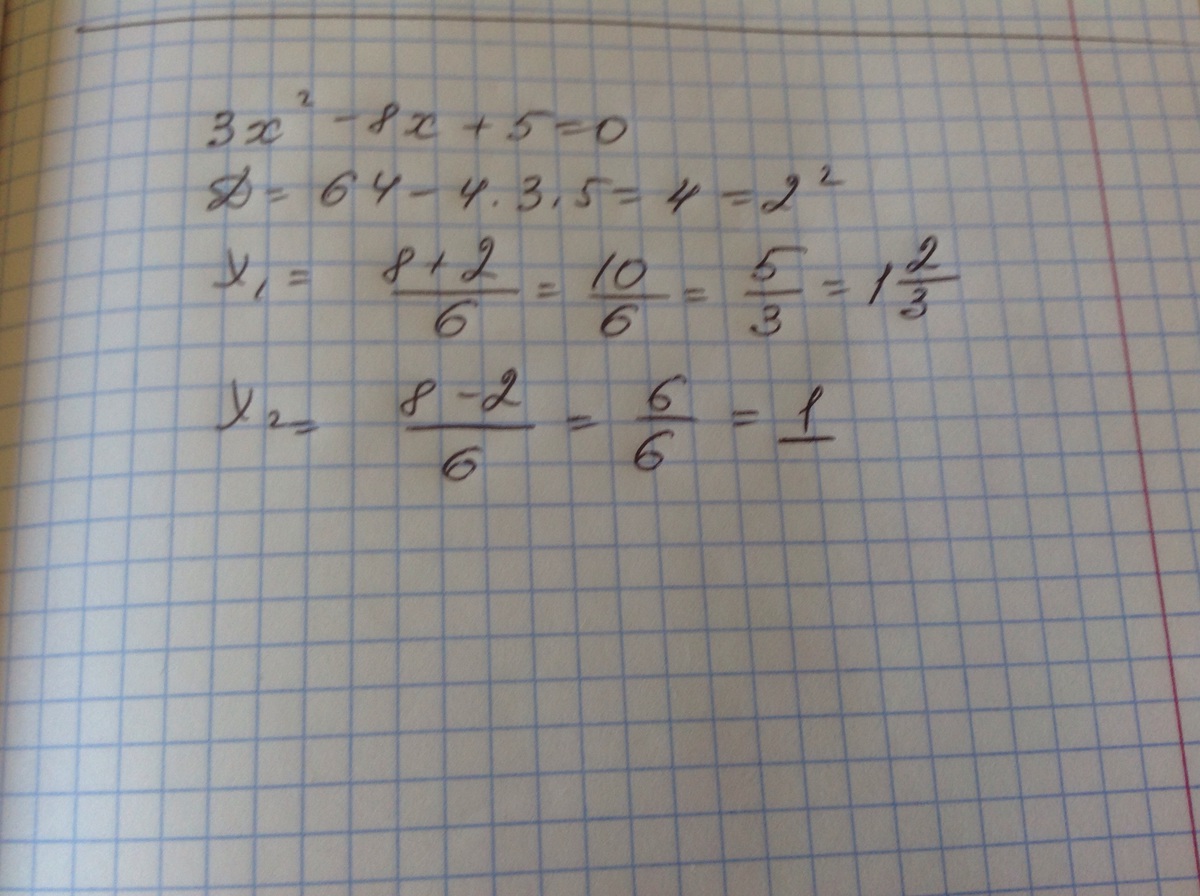 3x² - 8x + 5 = 0
D = 64 - 4 · 3 · 5 = 4 = 2²
x₁ = (8+2)/6 = 10/6 = 5/3 = 1 2/3
x₂ = (8-2)/6 = 6/6 = 1